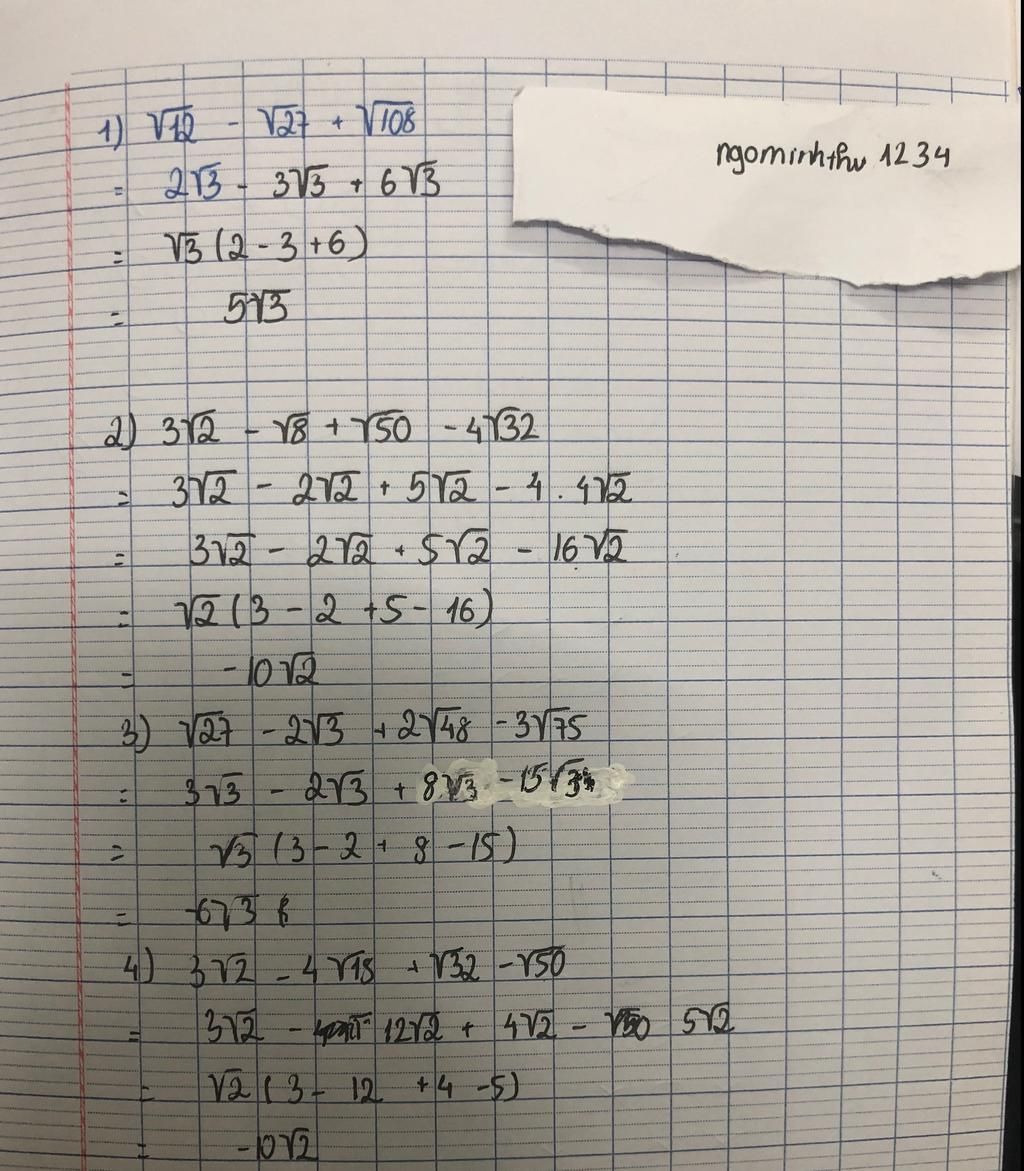 1) √12 - √27 + √108
ngominhthu 1234
= 2√3 - 3√3 + 6√3
= √3 (2 - 3 + 6)
= 5√3
2) 3√2 - √8 + √50 - 4√32
= 3√2 - 2√2 + 5√2 - 4 . 4√2
= 3√2 - 2√2 + 5√2 - 16√2
= √2 (3 - 2 + 5 - 16)
= -10√2
3) √27 - 2√3 + 2√48 - 3√75
= 3√3 - 2√3 + 8√3 - 15√3
= √3 (3 - 2 + 8 - 15)
= -6√3
4) 3√2 - 4√18 + √32 - √50
= 3√2 - 12√2 + 4√2 - 5√2
= √2 (3 - 12 + 4 - 5)
= -10√2